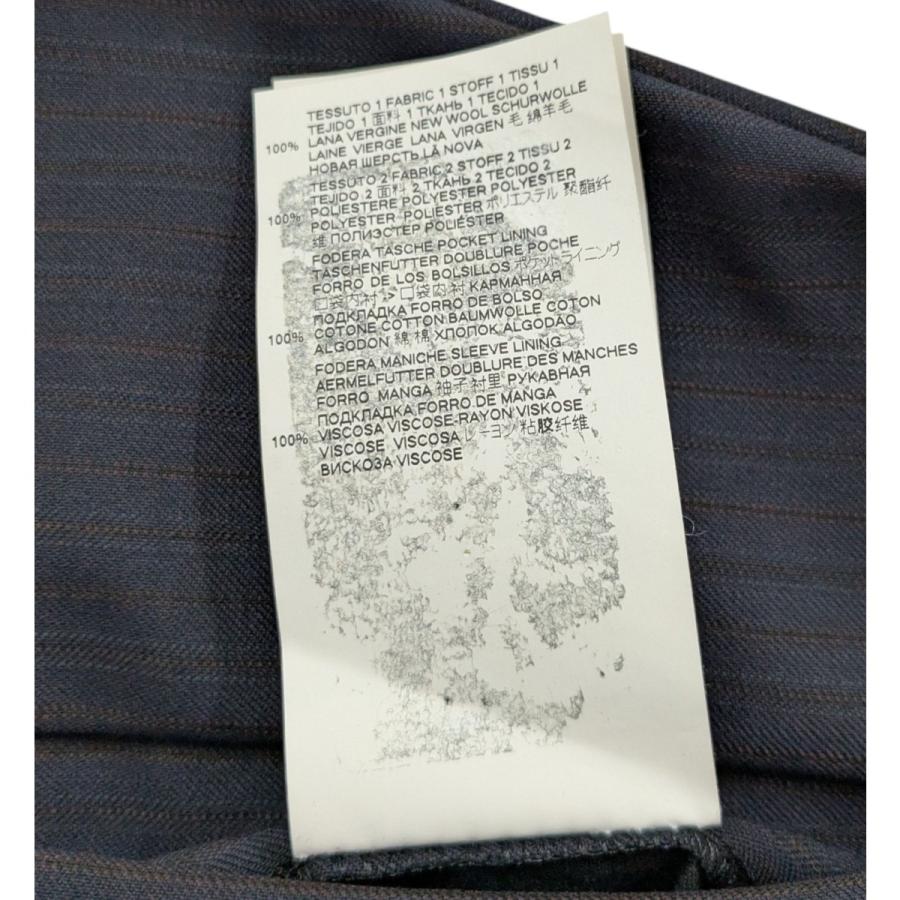 TESSUTO 1 FABRIC 1 STOFF 1 TISSU 1
TEJIDO 1 面料 1 ТКАНЬ 1 TECIDO 1
100% LANA VERGINE NEW WOOL SCHURWOLLE
LAINE VIERGE LANA VIRGEN 毛 绵羊毛
НОВАЯ ШЕРСТЬ LÃ NOVA
TESSUTO 2 FABRIC 2 STOFF 2 TISSU 2
TEJIDO 2 面料 2 ТКАНЬ 2 TECIDO 2
100% POLIESTERE POLYESTER POLYESTER
POLYESTER POLIÉSTER ポリエステル 聚酯纤
维 ПОЛИЭСТЕР POLIÉSTER
FODERA TASCHE POCKET LINING
TASCHENFUTTER DOUBLURE POCHE
FORRO DE LOS BOLSILLOS ポケットライニング
口袋内衬 -> 口袋内衬 КАРМАННАЯ
ПОДКЛАДКА FORRO DE BOLSO
100% COTONE COTTON BAUMWOLLE COTON
ALGODON 綿 棉 ХЛОПОК ALGODÃO
FODERA MANICHE SLEEVE LINING
AERMELFUTTER DOUBLURE DES MANCHES
FORRO MANGA 袖子衬里 РУКАВНАЯ
ПОДКЛАДКА FORRO DE MANGA
100% VISCOSA VISCOSE-RAYON VISKOSE
VISCOSE VISCOSA レーヨン 粘胶纤维
ВИСКОЗА VISCOSE